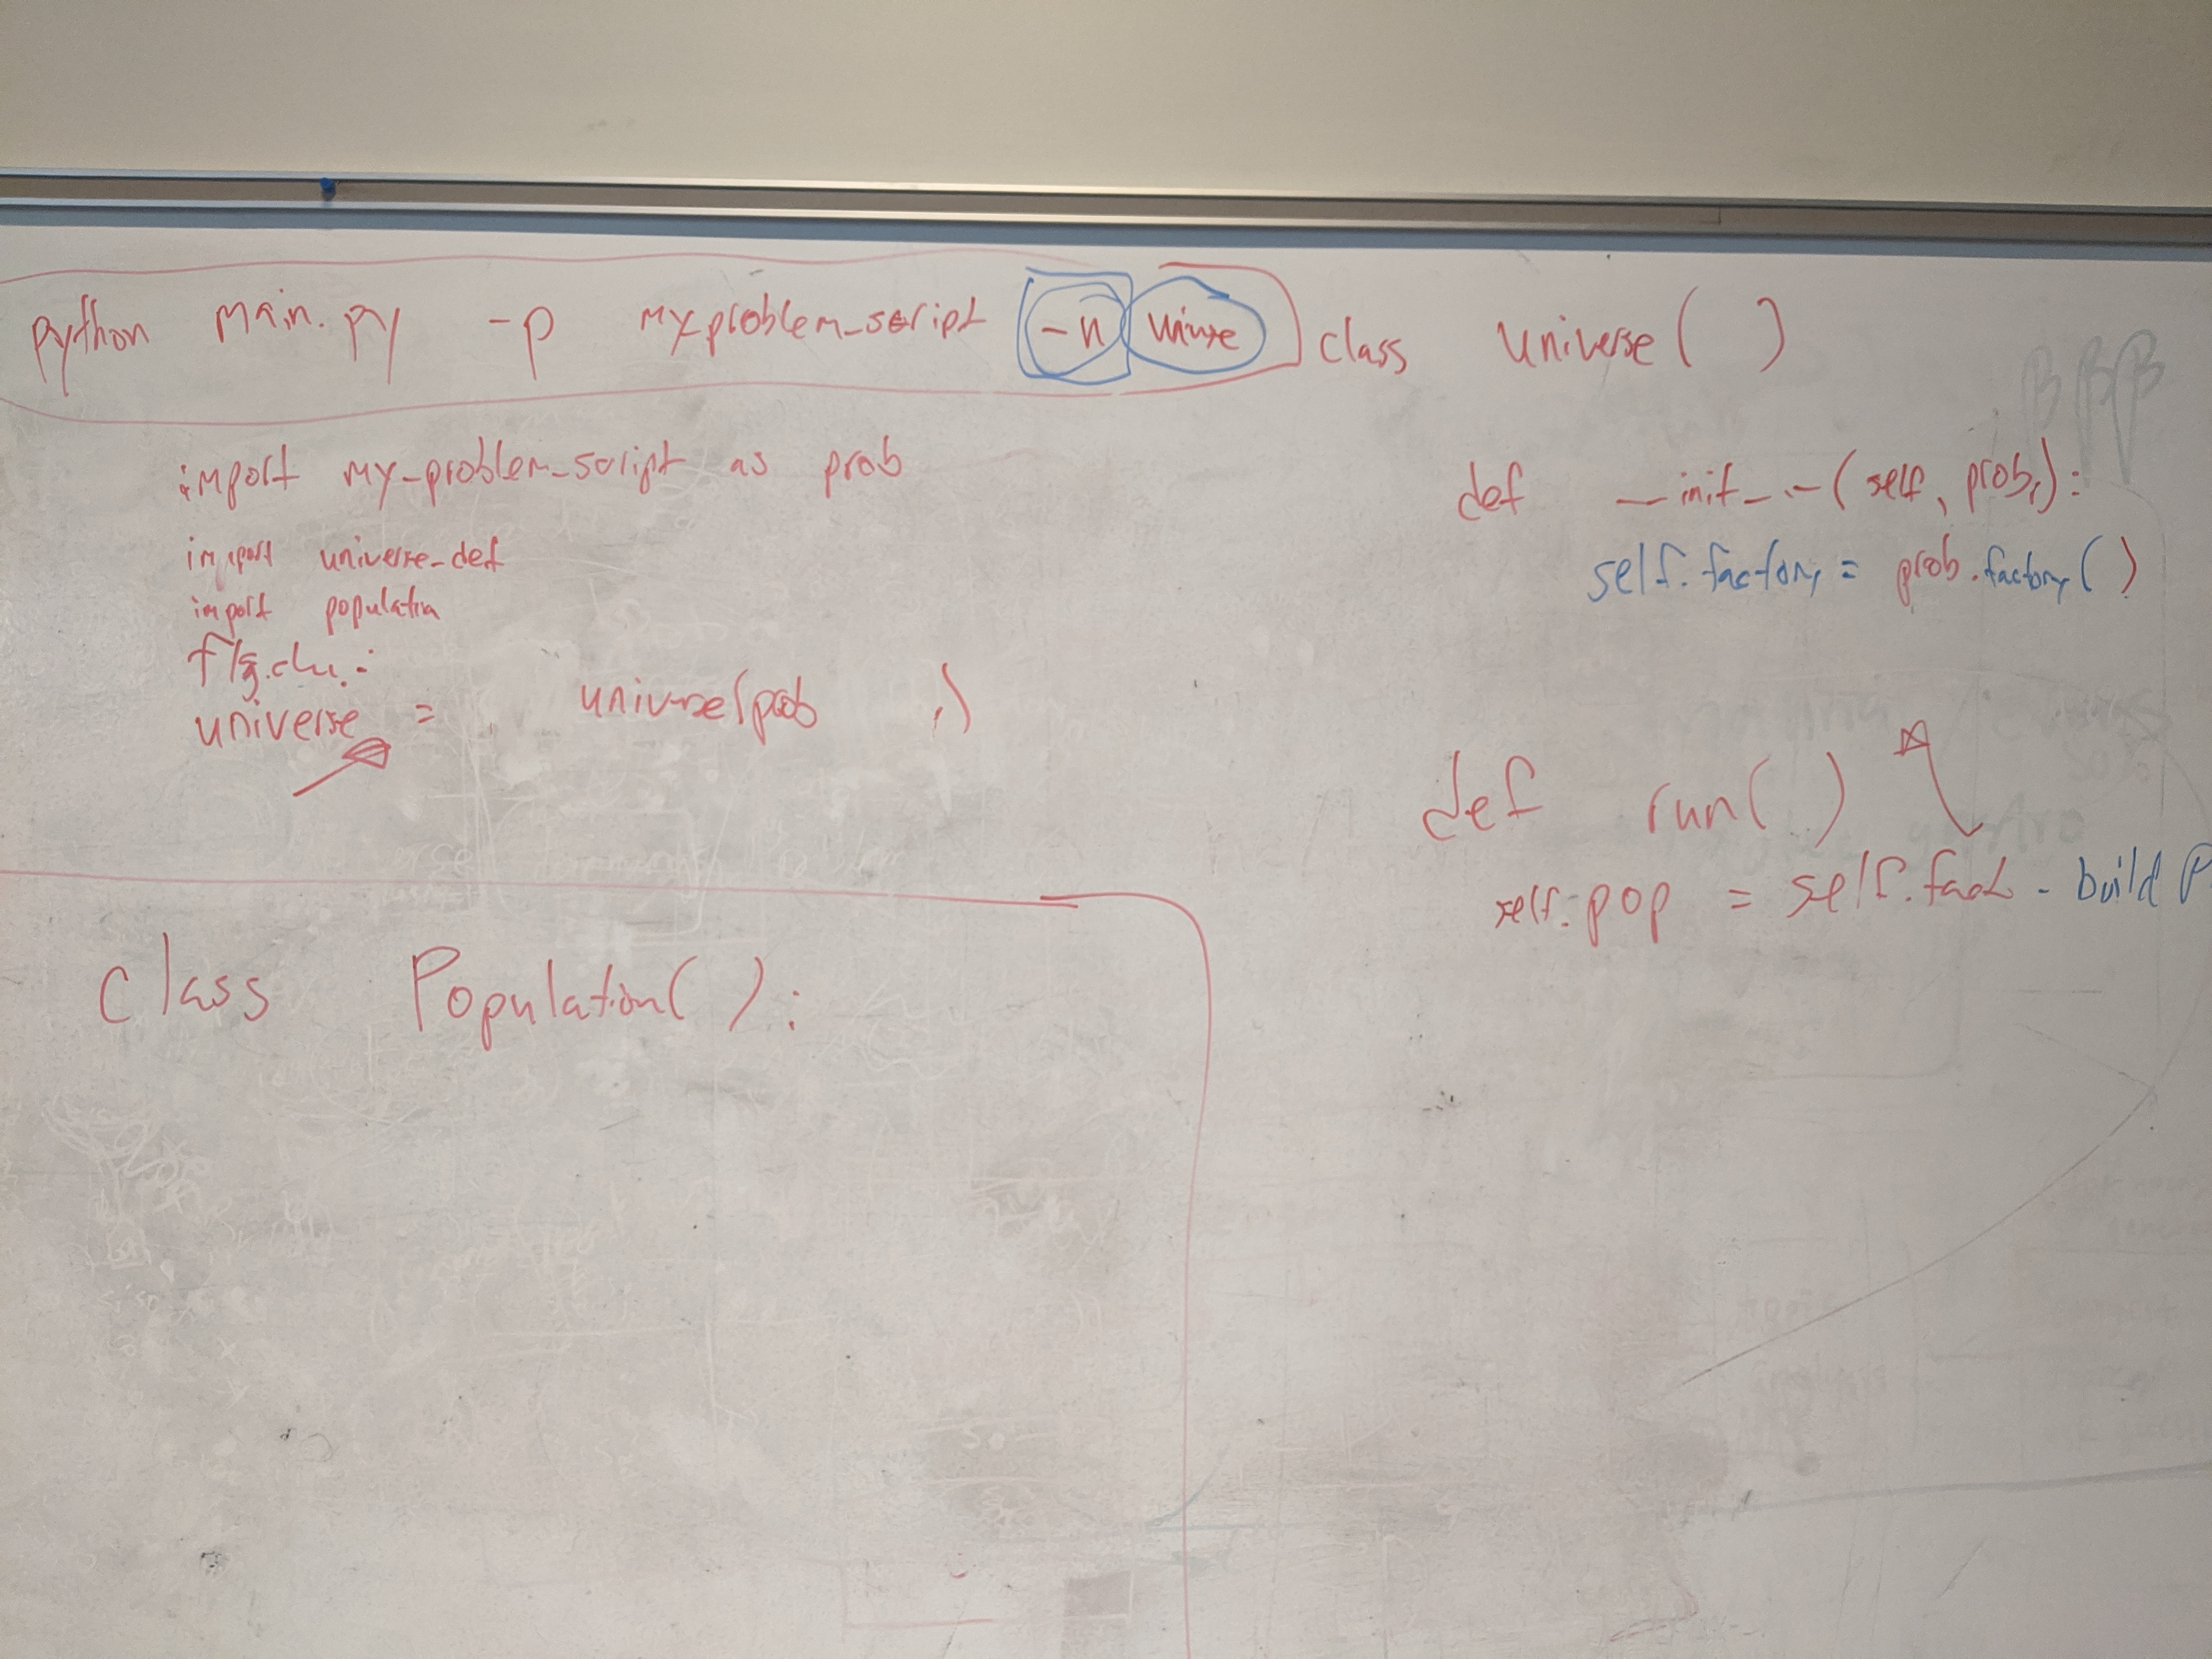 python main.py -p my_problem_script -n
import my_problem_script as prob
import universe_def
import population
universe = universe(prob ,)
class Population():
class universe( )
def __init__(self, prob,):
self.factory = prob.factory()
def run( )
self.pop = self.fact. build P